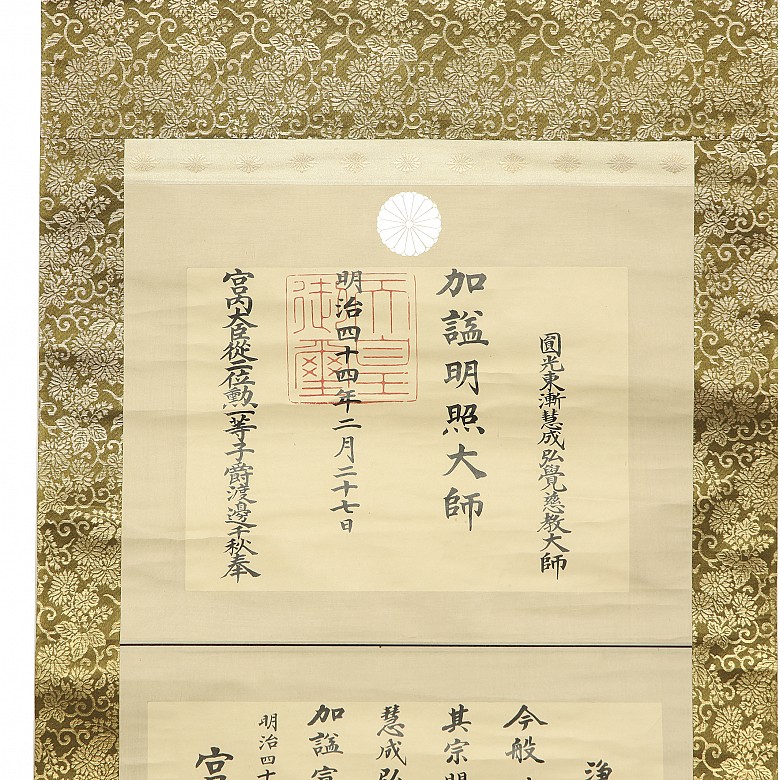 圓光東漸慧成弘覺慈教大師
加諡明照大師
明治四十四年二月二十七日
天皇御璽
宮内大臣從二位勲一等子爵渡邊千秋奉
淨
今般
其宗
慧成弘
加諡
明治四十
宮